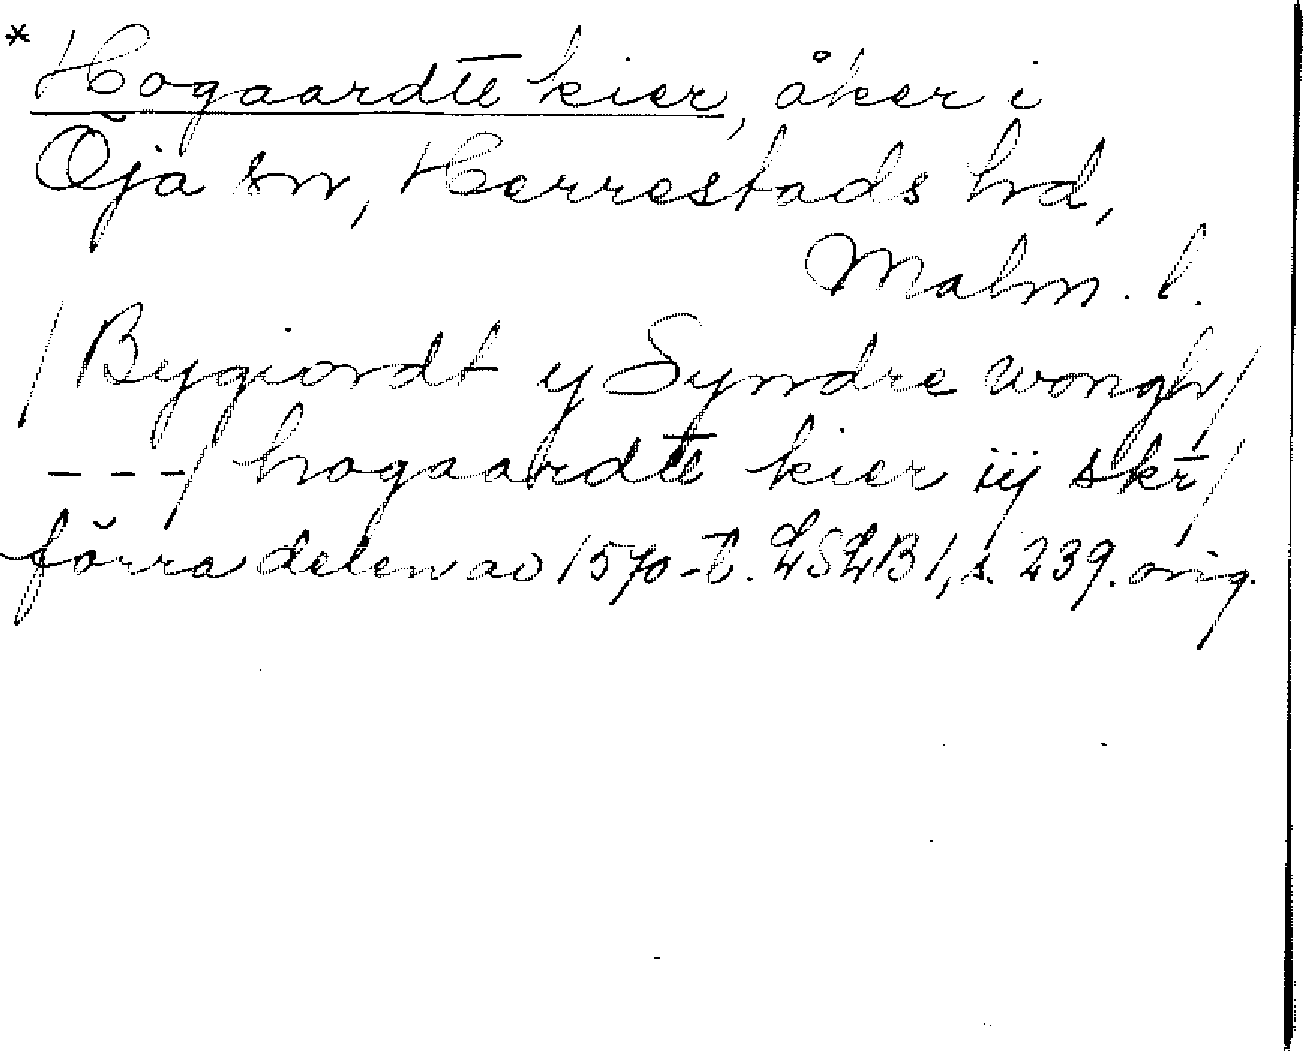 * Hogaardtt kier, åker i
Öja sn, Herrestads hd,
Malm. l.
/ Bygiordt y Syndre wongh /
---/ hogaardtt kier iij skr̄ /
förra delen av 1570-t. LSLB 1, s. 239. orig.